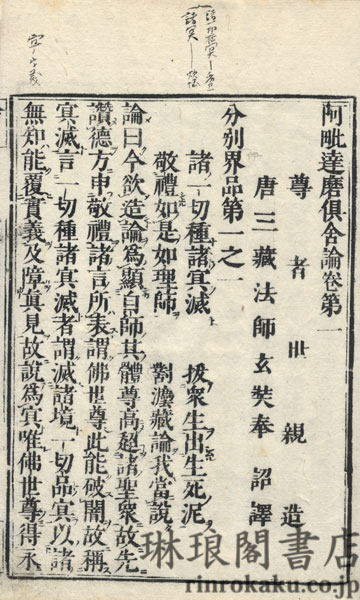 阿毗達磨俱舍論卷第一
尊者世親造
唐三藏法師玄奘奉詔譯
分別界品第一之一
諸一切種諸冥滅 拔衆生出生死泥
敬禮如是如理師 對法藏論我當說
論曰今欲造論為顯自師其體尊高超諸聖衆故先
讚德方申敬禮諸言所表謂佛世尊此能破闇故稱
冥滅言一切種諸冥滅者謂滅諸境一切品冥以諸
無知能覆實義及障真見故說為冥唯佛世尊得永
琳琅閣書店
rinrokaku.co.jp